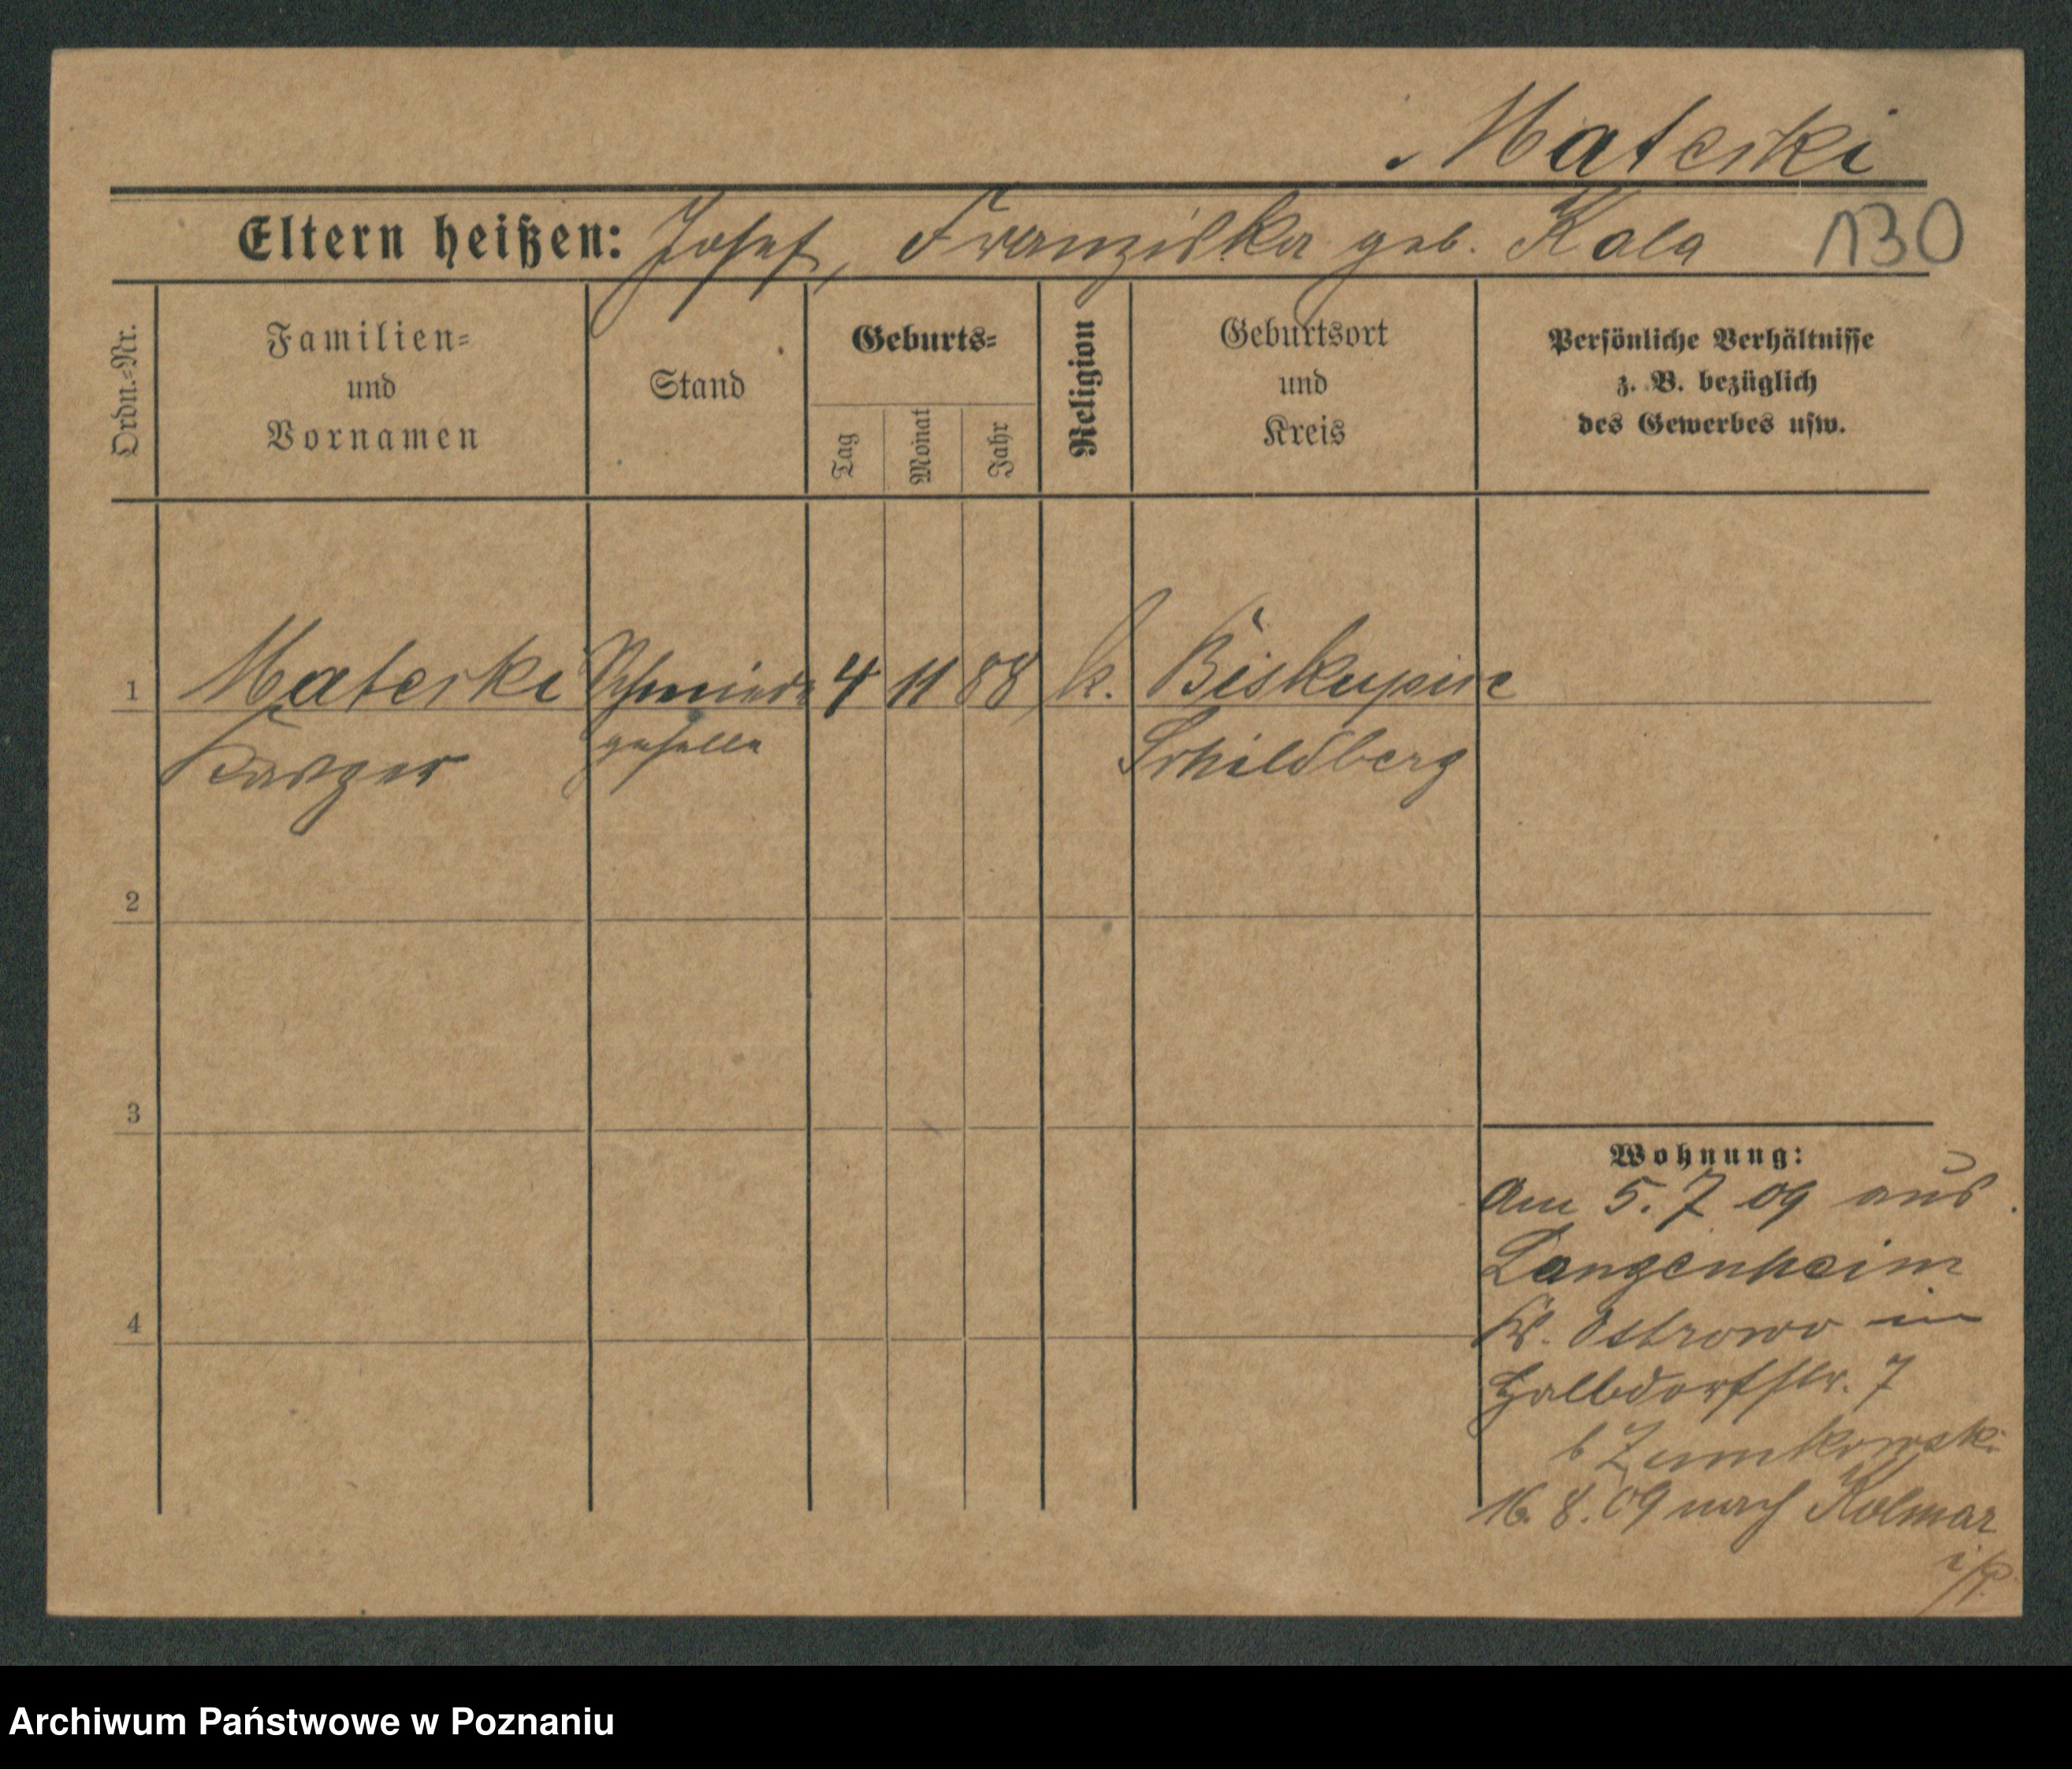 Materki
Eltern heißen: Josef, Franziska geb. Kala 130
Ordn.-Nr.
Familien-
und
Vornamen
Stand
Geburts-
Tag
Monat
Jahr
Religion
Geburtsort
und
Kreis
Persönliche Verhältnisse
z. B. bezüglich
des Gewerbes usw.
1 Materki Schmiede 4 11 88 k. Biskupice
Kasper geselle Schildberg
2
3
4
Wohnung:
Am 5. 7 09 aus
Langenheim
Kr. Ostrowo in
Halbdorfstr. 7
b
16. 8. 09 nach Kolmar
i/P.
Archiwum Państwowe w Poznaniu